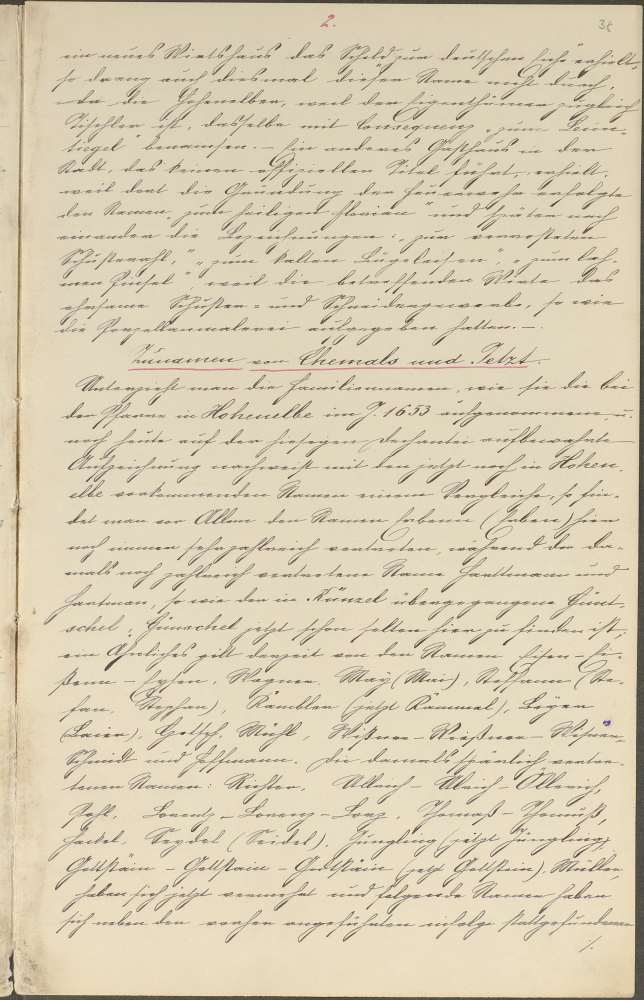 2.
38
ein neues Wirtshaus das Schild zum deutschen erhielt,
so drang auch diesmal dieser Name nicht durch,
da die Hohenelber, weil der Eigenthümer zugleich
Tischler ist, dasselbe mit Consequenz „zum Leim-
tiegel" benamsen. – Ein anderes Gasthaus in der
Stadt, das keinen offiziellen Titel führt, erhielt,
weil dort die Gründung der Feuerwehr erfolgte
den Namen „zum heiligen Florian" und später nach
einander die Bezeichnungen: „zum
", „zum kalten Bügeleisen", „zum lah-
men Pinsel", weil die betreffenden Wirte das
ehrsame Schuster- und Schneidergewerbe, so wie
die Porzellanmalerei aufgegeben hatten. –
Zunamen von Ehemals und Jetzt.
Unterzieht man die Familiennamen, wie sie die bei
der Pfarre in Hohenelbe im J. 1653 aufgenommene u.
noch heute auf der hiesigen Dechantei aufbewahrte
Aufzeichnung nachweist mit den jetzt noch in Hohen-
elbe vorkommenden Namen einem Vergleiche, so fin-
det man vor Allem den Namen (Erben) hier
noch immer sehr zahlreich vertreten, während der da-
mals noch zahlreich vertretene Name Harttmann und
Hartman, so wie der in Künzel übergegangene Günt-
schel, Günschel jetzt schon selten hier zu finden ist,
ein Ähnliches gilt derzeit von den Namen
, Wagner, May (Mai), Steffann (Ste-
fan, Stephan), Kämbler (jetzt Kämmel),
(Baier), Gottsch, Mühl,
Schmidt und Hoffmann. Die damals spärlich vertre-
tenen Namen: Richter, Ullrich – Ulrich – Ollerich,
Pohl, Lorentz – Lorenz – , Thomaß – Thomuß,
Hackel, Seydel (Seidel), Jüngling (jetzt Jüngling),
Gottstain – (jetzt Gottstein), Müller
haben sich jetzt vermehrt und folgende Namen haben
sich neben den vorher angeführten infolge stattgefundenen
./.